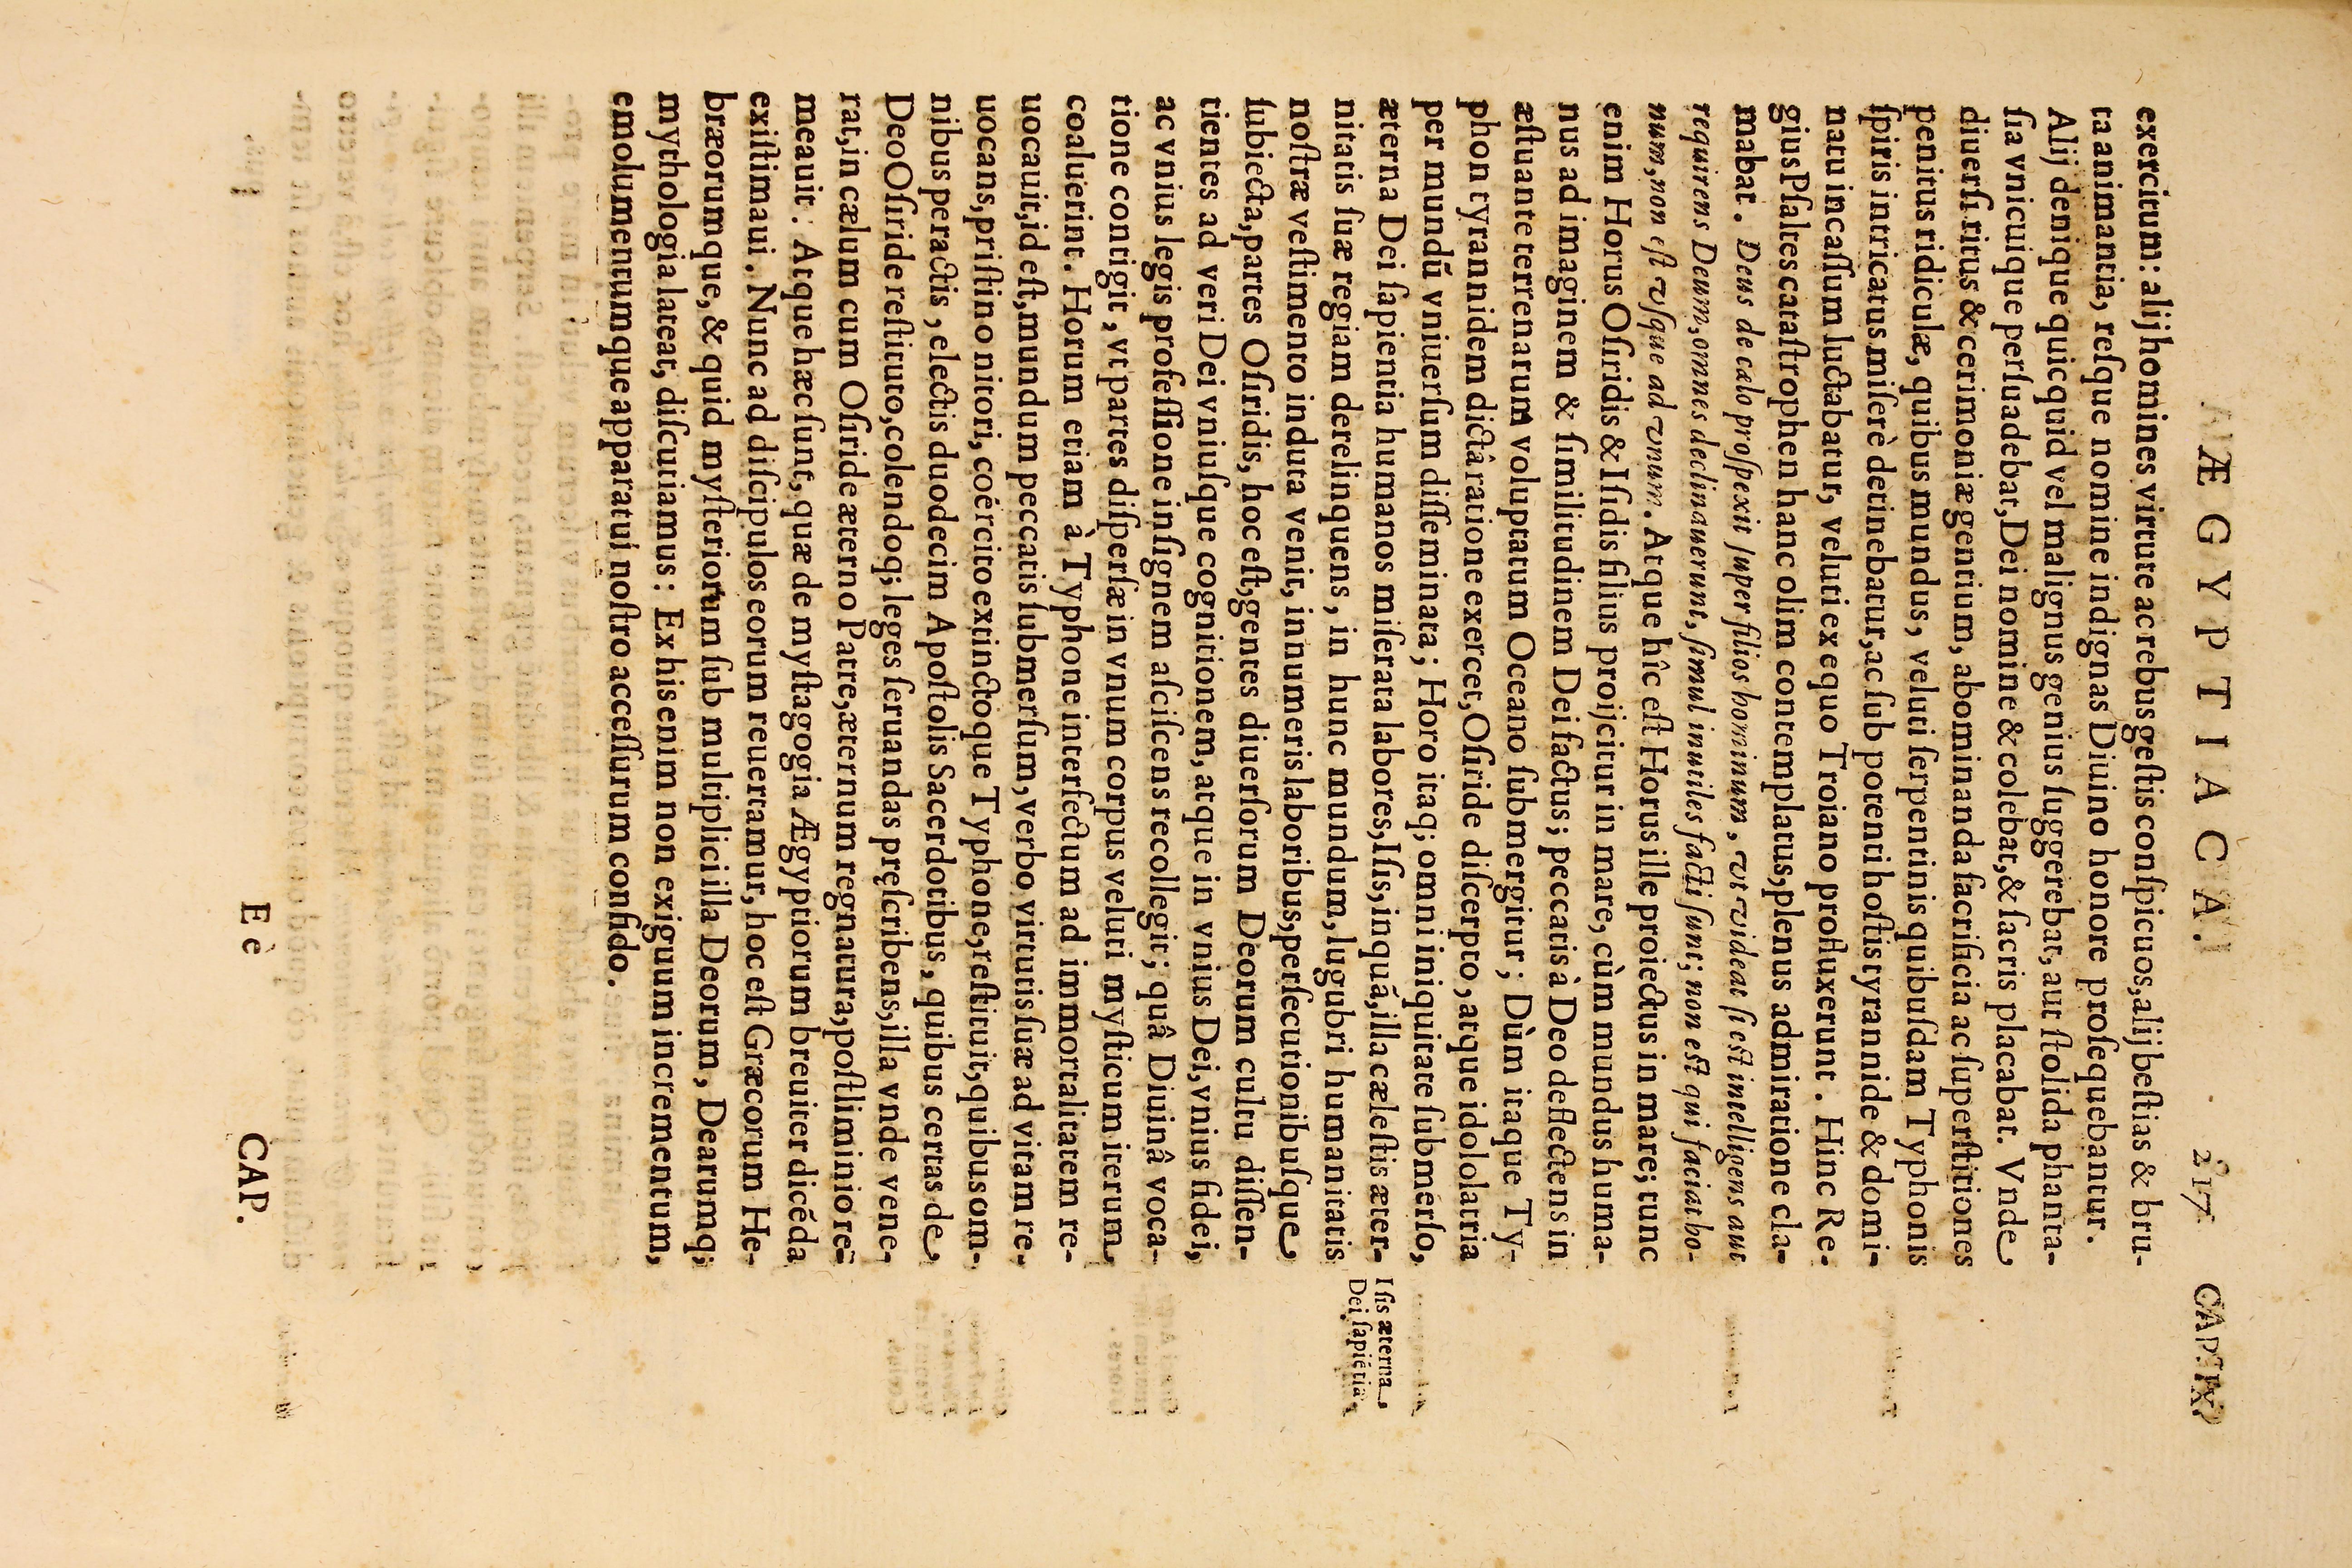 ÆGYPTIACA. 217 CAP. IX.
exercitum: alij homines virtute ac rebus gestis conſpicuos, alij beſtias & bru-
ta animantia, reſque nomine indignas Diuino honore proſequebantur.
Alij denique quicquid vel malignus genius ſuggerebat, aut ſtolida phanta-
ſia vnicuique perſuadebat, Dei nomine & colebat, & ſacris placabat. Vnde
diuerſi ritus & cerimoniæ gentium, abominanda ſacrificia ac ſuperſtitiones
penitus ridiculæ, quibus mundus, veluti ſerpentinis quibuſdam Typhonis
ſpiris intricatus miſerè detinebatur, ac ſub potenti hoſtis tyrannide & domi-
natu incaſſum luctabatur, veluti ex equo Troiano profluxerunt. Hinc Re-
gius Pſaltes cataſtrophen hanc olim contemplatus, plenus admiratione cla-
mabat. Deus de cælo proſpexit ſuper filios hominum, vt videat ſi est intelligens aut
requirens Deum, omnes declinauerunt, ſimul inutiles facti ſunt; non est qui faciat bo-
num, non eſt vſque ad vnum. Atque hîc eſt Horus ille proiectus in mare; tunc
enim Horus Oſiridis & Iſidis filius proijcitur in mare, cùm mundus huma-
nus ad imaginem & ſimilitudinem Dei factus; peccatis à Deo deflectens in
æſtuante terrenarum voluptatum Oceano ſubmergitur; Dùm itaque Ty-
phon tyrannidem dictâ ratione exercet, Oſiride diſcerpto, atque idololatria
per mundũ vniuerſum diſſeminata; Horo itaq; omni iniquitate ſubmerſo,
æterna Dei ſapientia humanos miſerata labores, Iſis, inquã, illa cæleſtis æter-
nitatis ſuæ regiam derelinquens, in hunc mundum, lugubri humanitatis
noſtræ veſtimento induta venit, innumeris laboribus, perſecutionibuſque
ſubiecta, partes Oſiridis, hoc eſt, gentes diuerſorum Deorum cultu diſſen-
tientes ad veri Dei vniuſque cognitionem, atque in vnius Dei, vnius fidei,
ac vnius legis profeſſione inſignem aſciſcens recollegit; quâ Diuinâ voca-
tione contigit, vt partes diſperſæ in vnum corpus veluti myſticum iterum
coaluerint. Horum etiam à Typhone interfectum ad immortalitatem re-
uocauit, id eſt, mundum peccatis ſubmerſum, verbo virtutis ſuæ ad vitam re-
uocans, priſtino nitori, coërcito extinctoque Typhone, reſtituit, quibus om-
nibus peractis, electis duodecim Apoſtolis Sacerdotibus, quibus certas de
Deo Oſiride reſtituto, colendoq; leges ſeruandas pręſcribens, illa vnde vene-
rat, in cælum cum Oſiride æterno Patre, æternum regnatura, poſtliminio re-
meauit. Atque hæc ſunt, quæ de myſtagogia Ægyptiorum breuiter dicẽda
exiſtimaui. Nunc ad diſcipulos eorum reuertamur, hoc eſt Græcorum He-
bræorumque, & quid myſteriorum ſub multiplici illa Deorum, Dearumq;
mythologia lateat, diſcutiamus: Ex his enim non exiguum incrementum,
emolumentumque apparatui noſtro acceſſurum confido.
Iſis æterna
Dei ſapiẽtia
E e CAP.